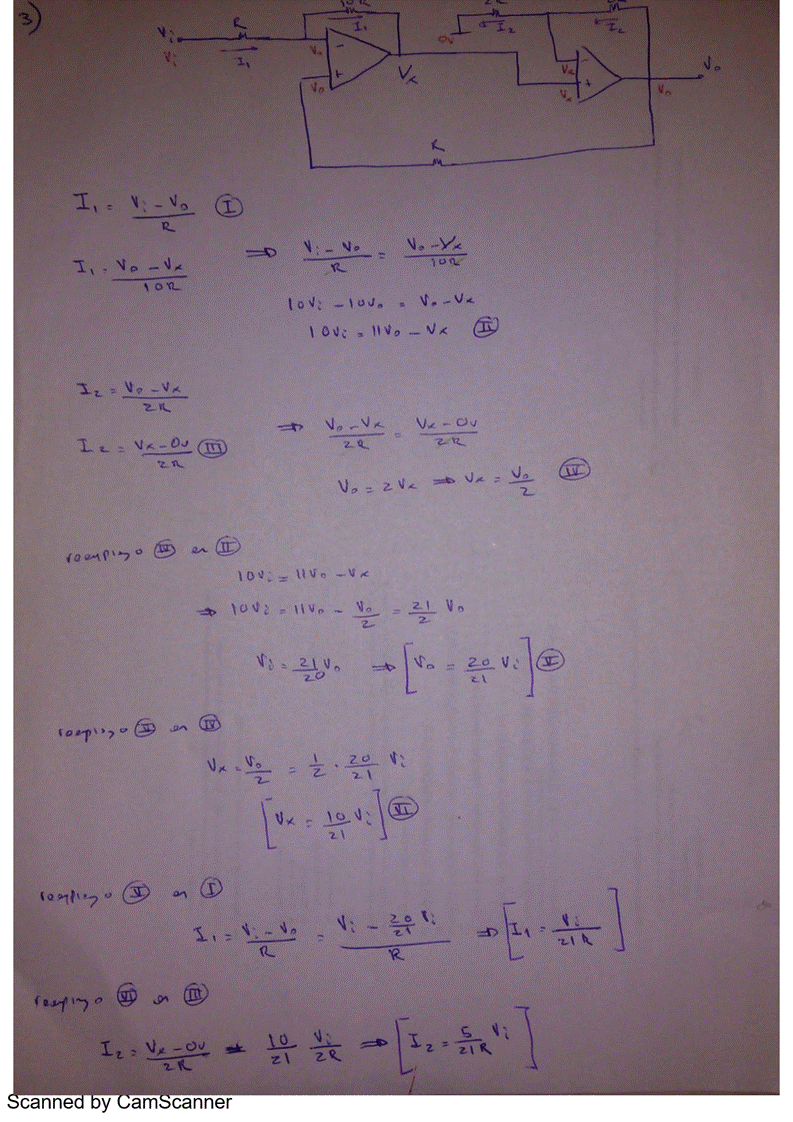 3)
10R 2R 2R
Vi R I1 Vo - 0V I2 I2 Vo
Vi Vo + Vx Vx - Vx + Vo
R
I1 = (Vi - Vo)/R (I)
I1 = (Vo - Vx)/10R ⇒ (Vi - Vo)/R = (Vo - Vx)/10R
10Vi - 10Vo = Vo - Vx
10Vi = 11Vo - Vx (II)
I2 = (Vo - Vx)/2R
I2 = (Vx - 0v)/2R (III) ⇒ (Vo - Vx)/2R = (Vx - 0v)/2R
Vo = 2Vx ⇒ Vx = Vo/2 (IV)
reemplazo (IV) en (II)
10Vi = 11Vo - Vx
⇒ 10Vi = 11Vo - Vo/2 = 21/2 Vo
Vi = 21/20 Vo ⇒ [Vo = 20/21 Vi] (V)
reemplazo (V) en (IV)
Vx = Vo/2 = 1/2 · 20/21 Vi
[Vx = 10/21 Vi] (VI)
reemplazo (V) en (I)
I1 = (Vi - Vo)/R = (Vi - 20/21 Vi)/R ⇒ [I1 = Vi/21R]
reemplazo (VI) en (III)
I2 = (Vx - 0v)/2R = 10/21 Vi/2R ⇒ [I2 = 5/21R Vi]
Scanned by CamScanner